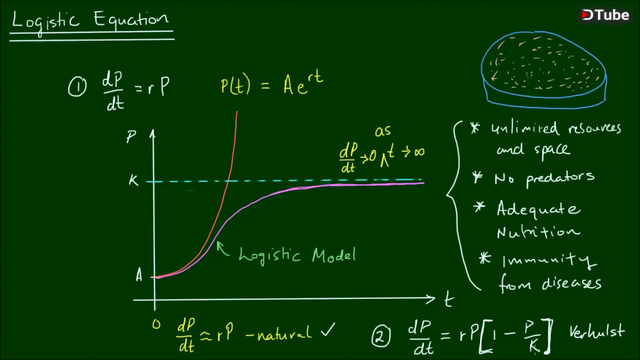 Logistic Equation
DTube
① dP/dt = rP
P(t) = Ae^rt
P
as
dP/dt → 0 ∧ t → ∞
K
Logistic Model
A
0
t
* unlimited resources
and space
* No predators
* Adequate
Nutrition
* Immunity
from diseases
dP/dt ≃ rP - natural ✓
② dP/dt = rP[1 - P/K] Verhulst